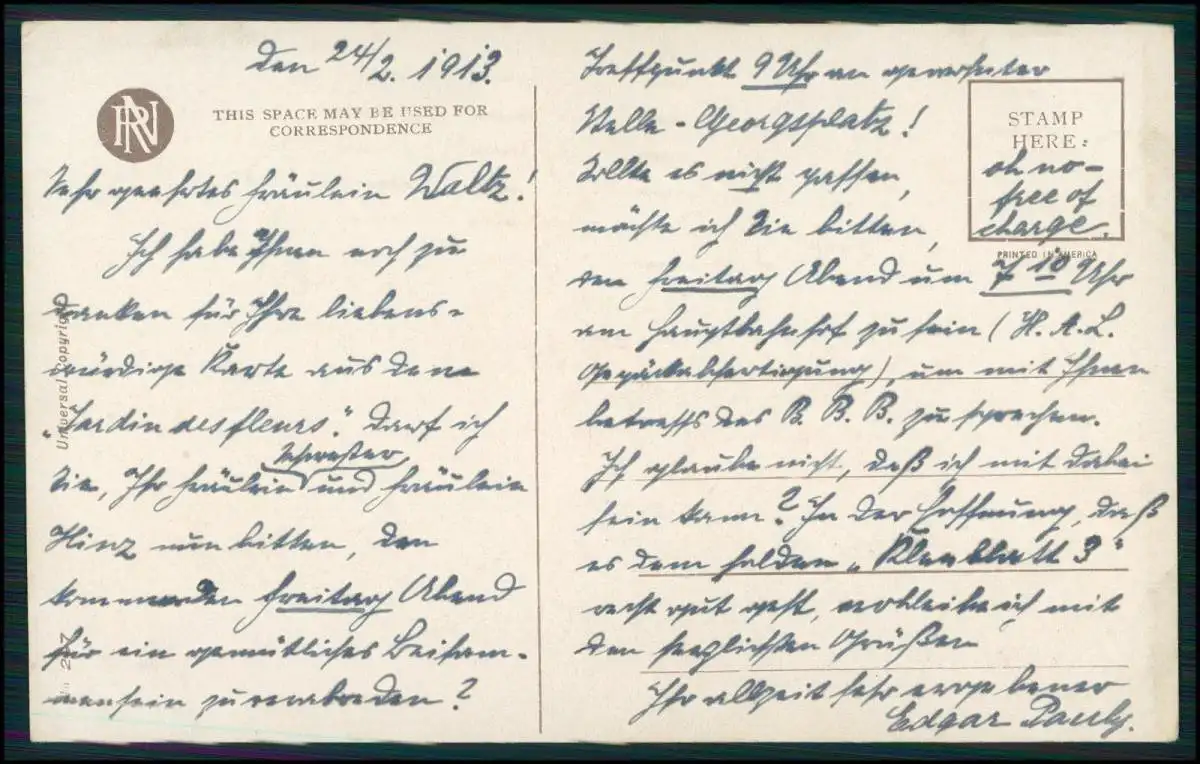 den 24/2. 1913.
RN
THIS SPACE MAY BE USED FOR
CORRESPONDENCE
Sehr geehrtes Fräulein Waltz!
Ich habe Ihnen noch zu
danken für Ihre liebens-
würdige Karte aus dem
"Jardin des fleurs". Darf ich
Schwester
Sie, Ihr Fräulein und Fräulein
Hinz nun bitten, den
kommenden Freitag Abend
für ein gemütliches Beisam-
mensein zu verabreden?
Universal Copyright
Treffpunkt 9 Uhr an
Stelle - Georgsplatz!
Sollte es nicht passen,
möchte ich Sie bitten,
am Freitag Abend um 7 10 Uhr
am Hauptbahnhof zu sein (H. A. L.
Gepäckabfertigung), um mit Ihnen
betreffs des B. B. B. zu sprechen.
Ich glaube nicht, daß ich mit dabei
sein kann? In der Hoffnung, daß
es dem holden "Kleeblatt 3"
recht gut geht, verbleibe ich mit
den herzlichsten Grüßen
Ihr allzeit sehr ergebener
Edgar Pauly.
STAMP
HERE:
oh no-
free of
charge.
PRINTED IN AMERICA